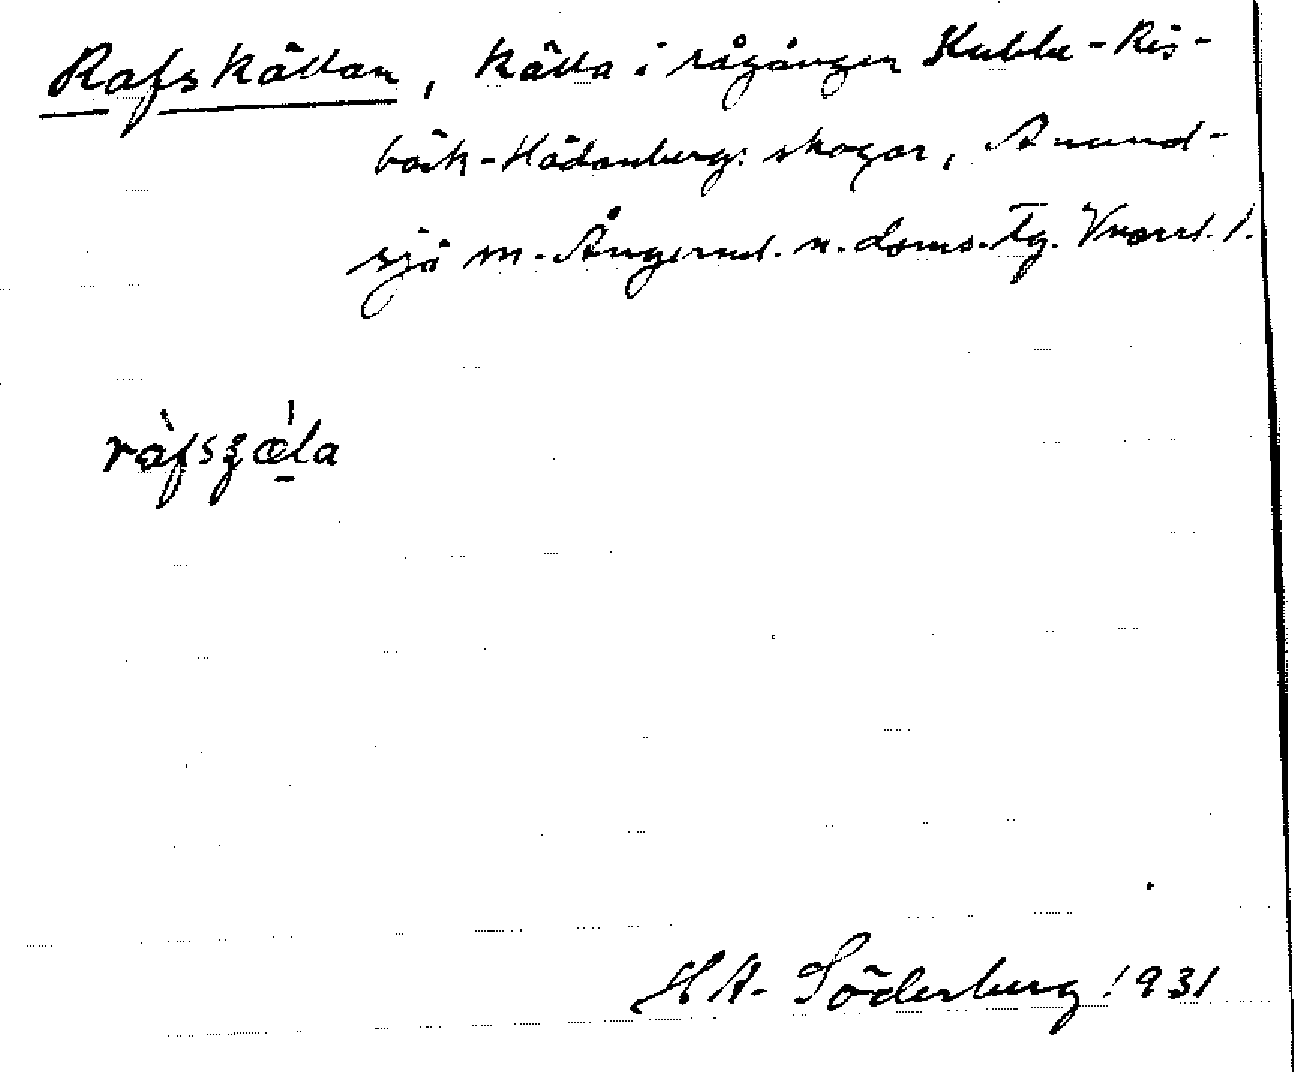 Rafskällan, källa i rågången Kubbe-Ris-
bäck-Hädanbergs skogar, Anund-
sjö sn. Ångerml. n. doms. Tg. Vnorrl. l.
ràfsʒæla
H A. Söderberg 1931